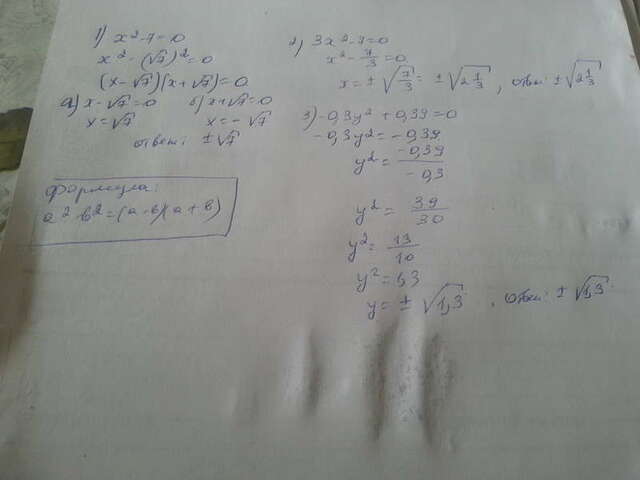 1) x² - 7 = 0
x² - (√7)² = 0
(x - √7)(x + √7) = 0
а) x - √7 = 0 б) x + √7 = 0
x = √7 x = - √7
ответ: ± √7
формула:
a² - b² = (a - b)(a + b)
2) 3x² - 7 = 0
x² - 7/3 = 0
x = ± √7/3 = ± √2 1/3, ответ: ± √2 1/3
3) -0,3y² + 0,39 = 0
-0,3y² = -0,39
y² = -0,39/-0,3
y² = 39/30
y² = 13/10
y² = 1,3
y = ± √1,3, ответ: ± √1,3